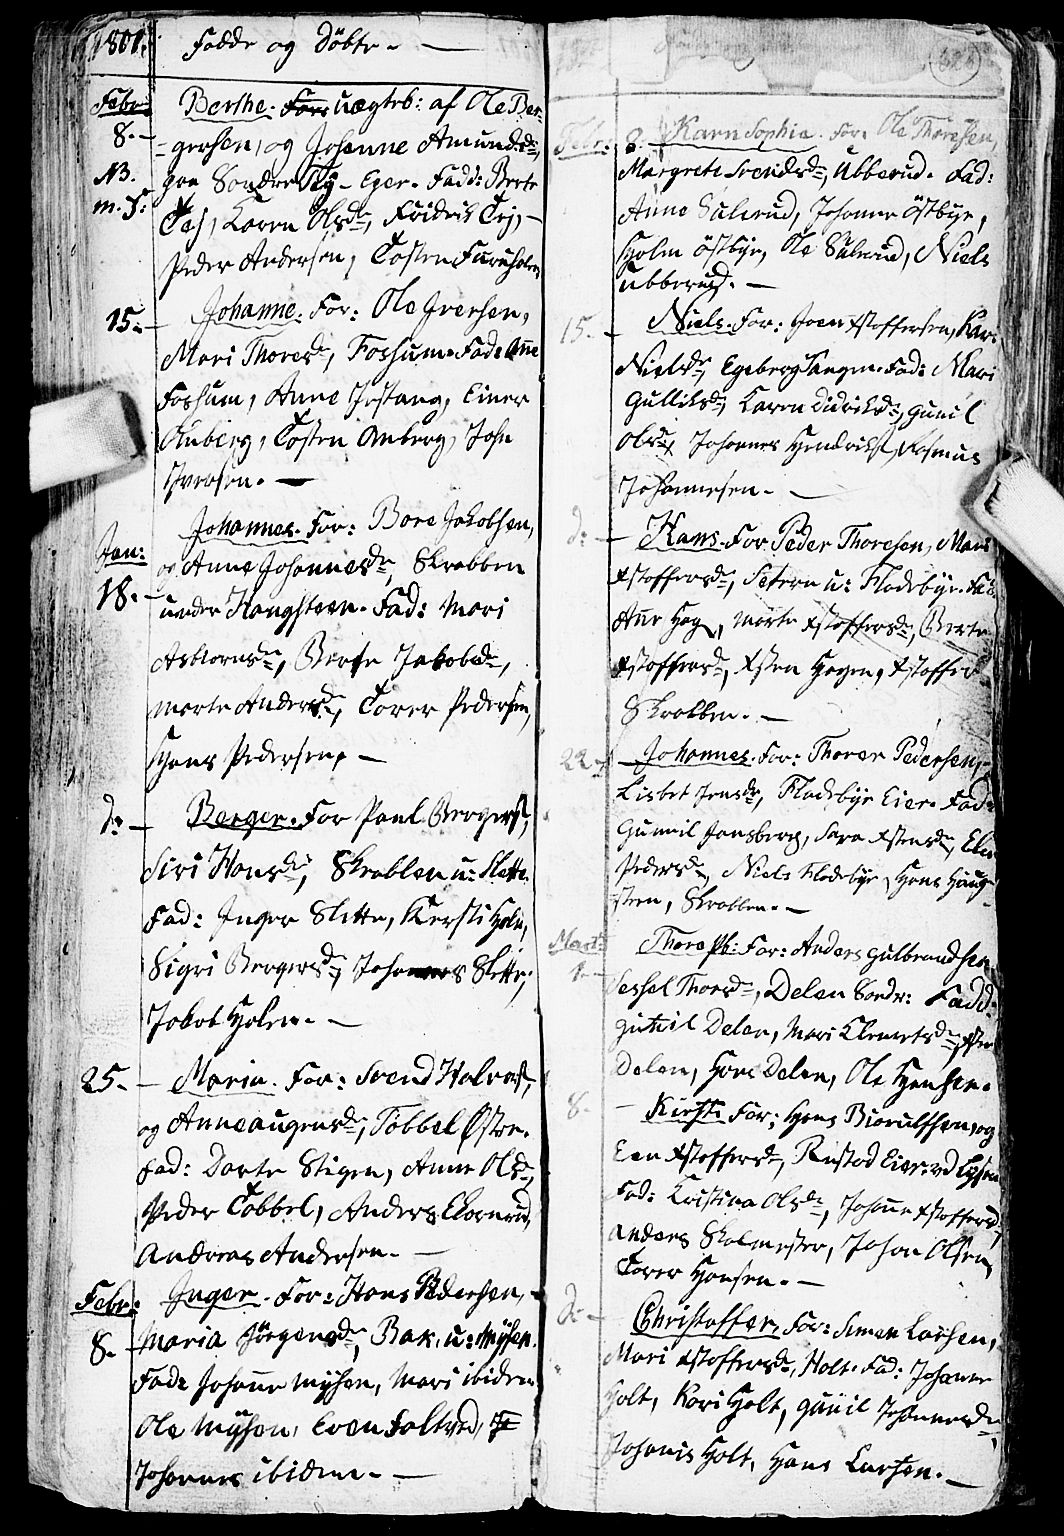 1801. Fødde og Døbte. —
Febr: Berthe. uægtb: af Ole Ber-
8. - gersen, og Johanne Amundsdr,
NB. paa Søndre - Eger. Fadd: Berte
m. 5: Tej, Karen Olsdr, Fridric Tej, -
Peder Andersen, Tosten Furuholm,
15. - Johanne. For: Ole Iversen,
Mari Thoresdr, Fossum. Fad: Anne
Fossum, Anne Jostang, Einer
Anberg, Tosten Anberg, John
Iversen. —
Johannes. For: Bore Jakobsen,
Jan: og Anne Johannesdr, Skrabben
18. - under Haugsteen. Fad: Mari
Asbiornsdr, Berte Jakobsdr,
Marte Andersdr, Torer Pedersen,
Hans Pedersen, —
d: - Berger. For Paul Bergers,
Siri Hansdr, Skrabben u: Slette.
Fad: Inger Slette, Kersti Holm,
Sigri Bergersdr, Johannes Slette,
Jakob Holm. —
25. - Maria. For: Svend Halvors,
og Anne Augensdr, Tøbbel Østre.
Fad: Dorte Stigen, Anne Olsdr,
Peder Tøbbel, Anders Ekornrud,
Andreas Andersen. —
Febr: Inger. For: Hans Pedersen, -
8. Maria Jørgensdr, Bak, u: Mysen.
Fad: Johanne Mysen, Mari ibidem
Ole Mysen, Even Foltved,
Johannes ibidem. —
Febr: 8. Karn Sophia. For: Ole Thoresen,
Margrete Svendsdr, Ubberud. Fad:
Anne Sulerud, Johanne Østbye,
Holm Østbye, Ole Sulerud, Niels
Ubberud. —
15. - Niels. For: Joen Xstoffersen, Kari
Nielsdr, Egeberg Fad: Mari
Gulliksdr, Karen Didriksdr, Gunil
Olsdr, Johannes Hendriks, Rasmus
Johannesen. —
d: - Hans. For Peder Thoresen, Mari
Xstoffersdr, Seteren u: Fladebye. Fad:
Anne Hag, Marte Xstoffersdr, Berte
Xstoffersdr, Xsten Hagen, Xstoffer
Skrabben. —
22. - Johannes. For: Thorer Pedersen,
Lisbet Jensdr, Fladebye Eier. Fad:
Gunnil Jonsberg, Sara Xstensdr, Elie
Pedersdr, Niels Fladebye, Hans Haug-
steen, Skrabben. —
Mart: Thore For: Anders Gulbrandsen,
1. - Sessel Thorsdr, Delen Søndr: Fadd:
Gunil Delen, Mari Clemetsdr,
Delen, Hans Delen, Ole Hansen.
8. - Kirsti For: Hans Biørulfsen, og
Een Xstoffersdr, Rustad Eier.
Fad: Kristina Olsdr, Johanne Xstoffersdr,
Anders Skolmester, Johan Olsen,
Torer Hansen. —
d: - Christoffer, For: Simen Larsen,
Mari Xstoffersdr, Holt. Fad: Johanne
Holt, Kari Holt, Gunil Johannesdr,
Johanis Holt, Hans Larsen. —